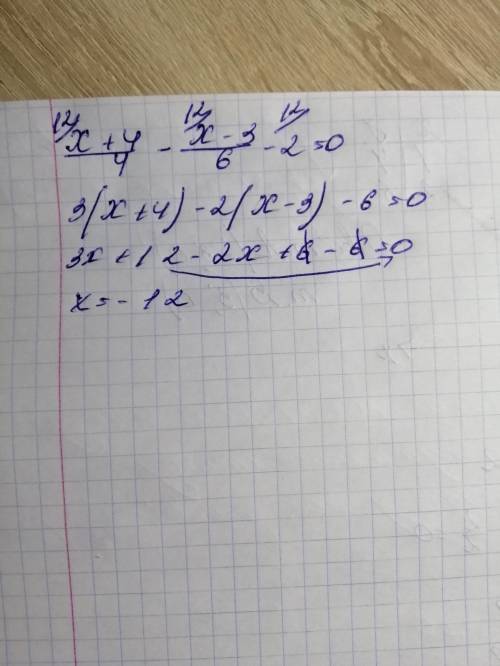 12/ 12/ 12/
x+4/4 - x-3/6 - 2 = 0
3(x+4) - 2(x-3) - 6 = 0
3x + 12 - 2x + 6 - 6 = 0
x = - 12